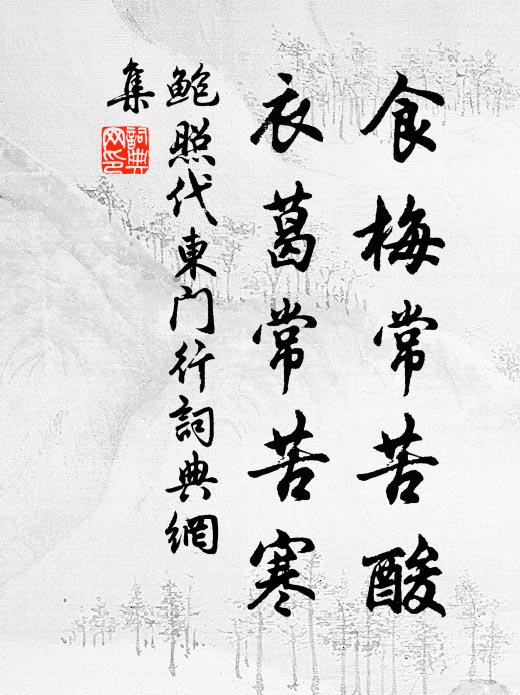 食梅常苦酸
衣葛常苦寒
鲍照代東门行詞典網
集
詞典
网印